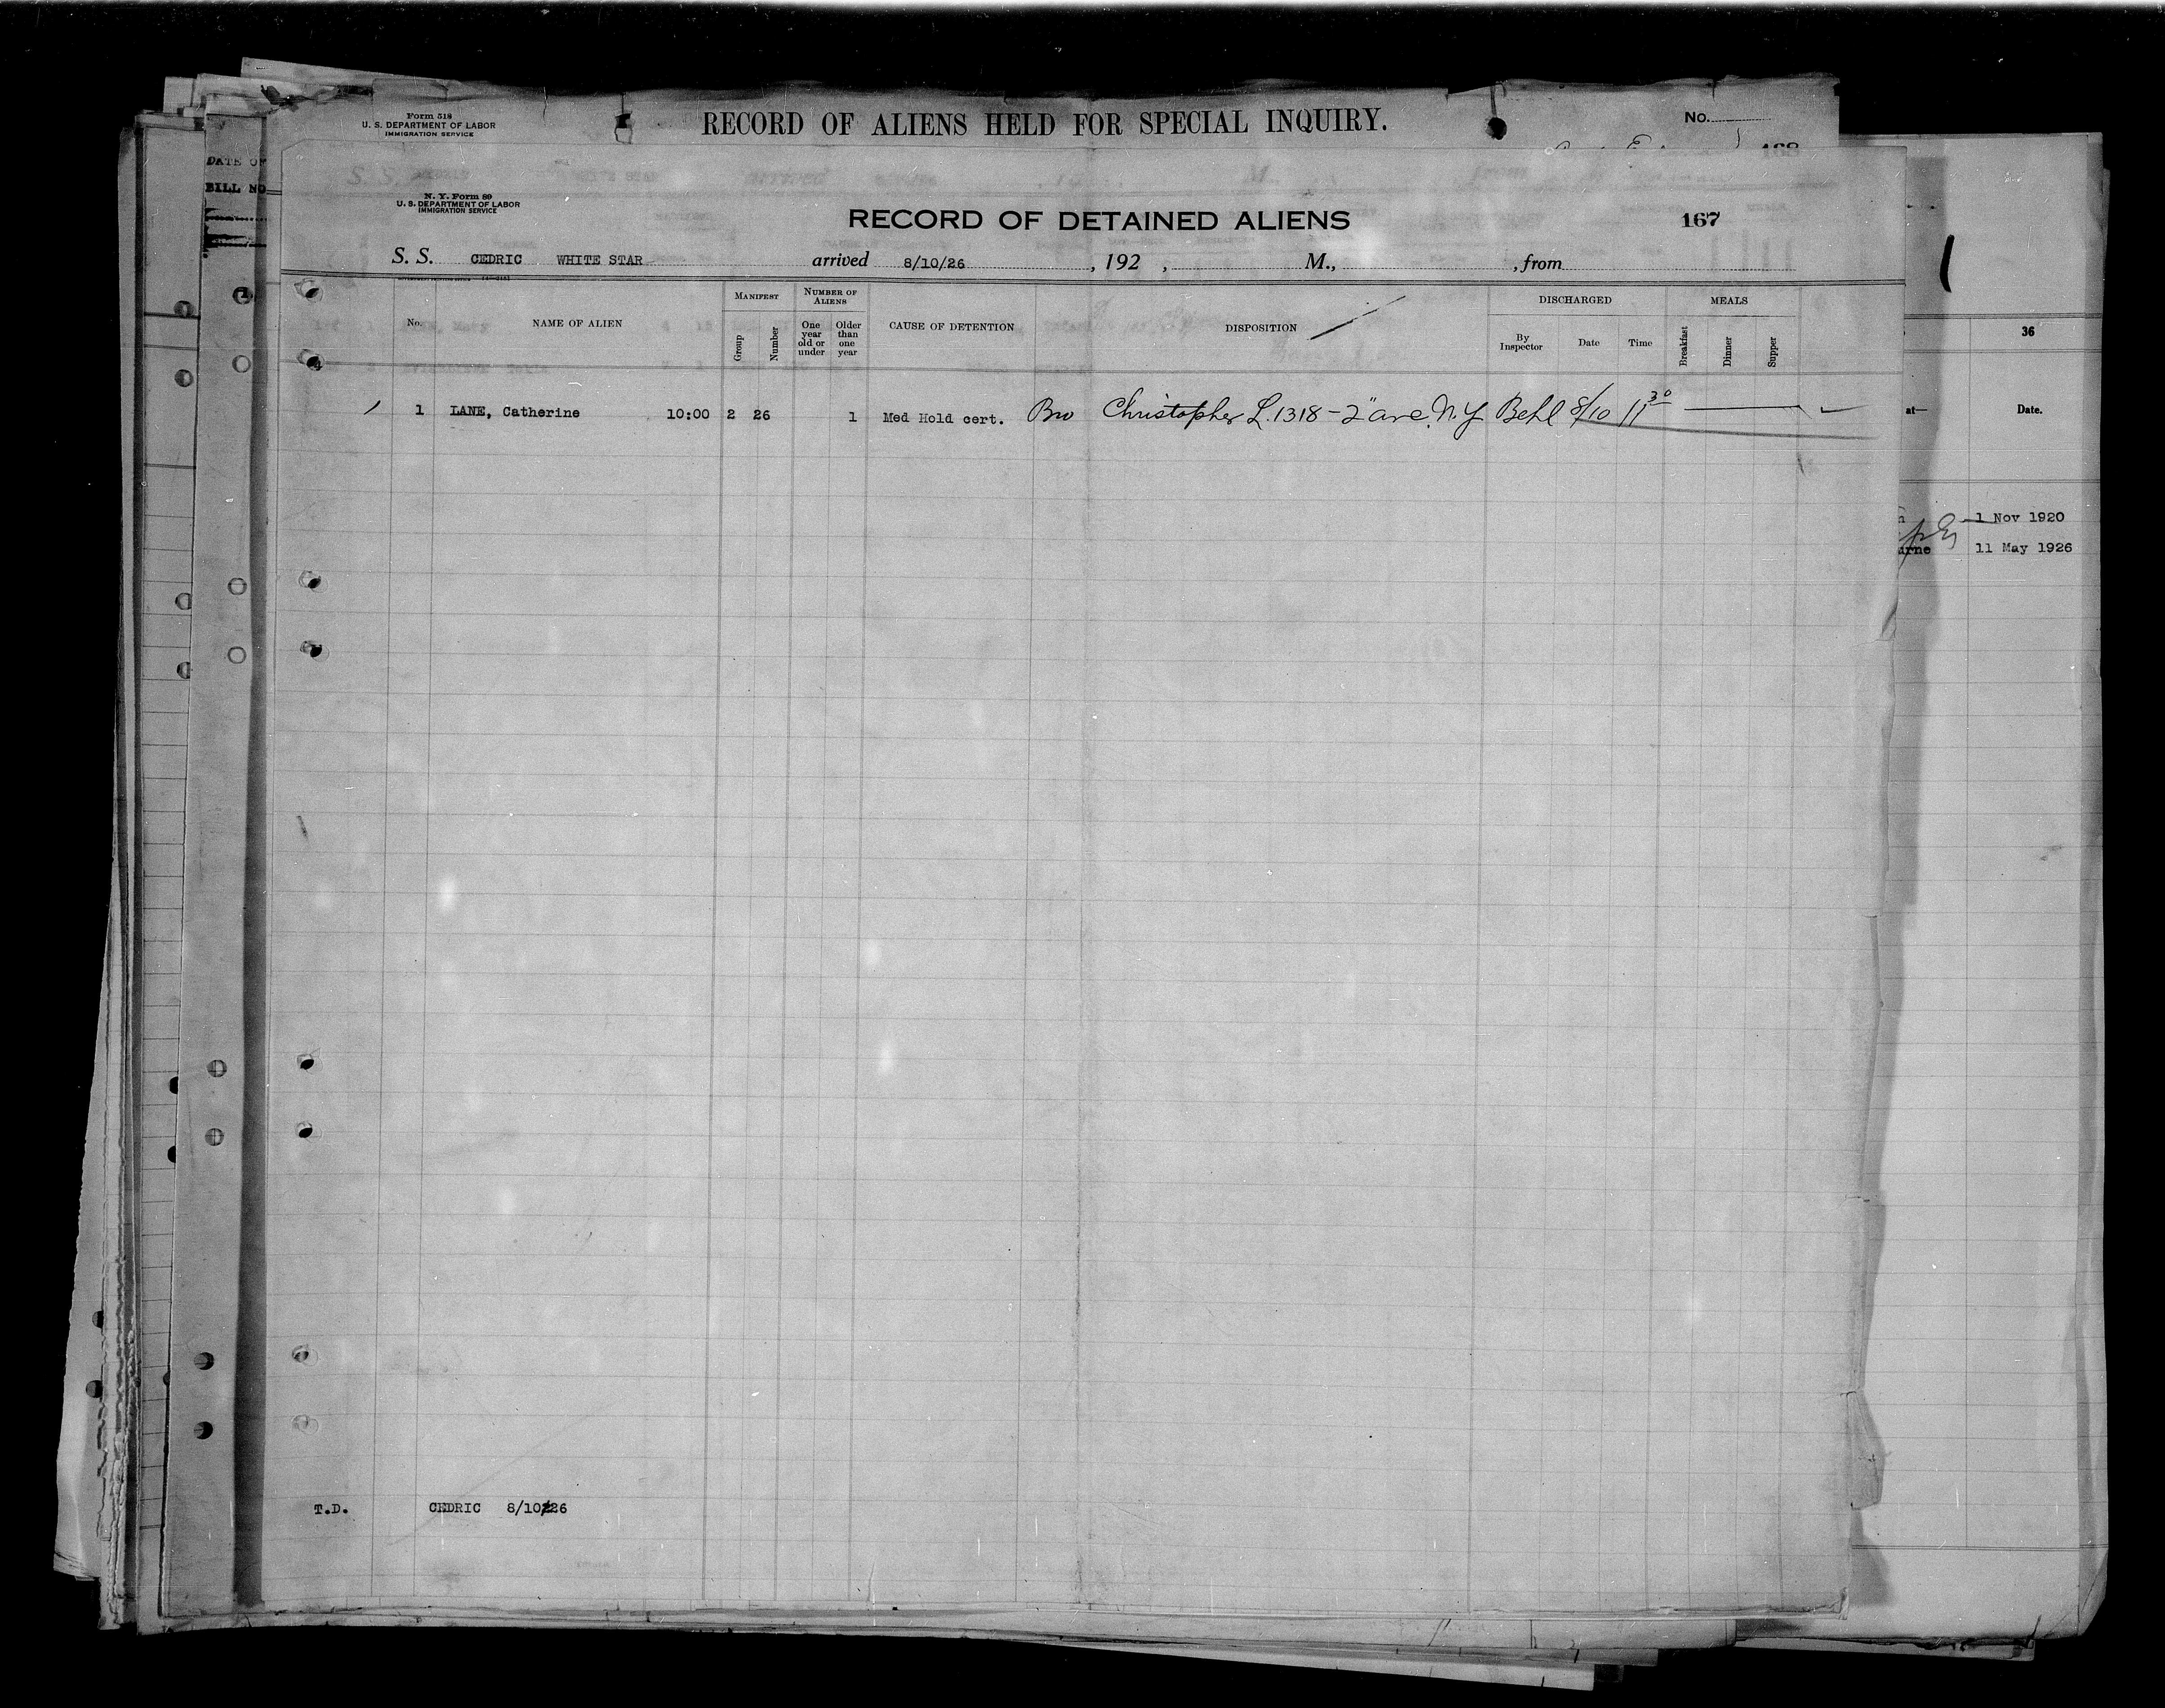 Form 518
U. S. DEPARTMENT OF LABOR
IMMIGRATION SERVICE
RECORD OF ALIENS HELD FOR SPECIAL INQUIRY.
No.
168
DATE OF
BILL NO
N. Y. Form 89
U. S. DEPARTMENT OF LABOR
IMMIGRATION SERVICE
RECORD OF DETAINED ALIENS
167
S. S. CEDRIC WHITE STAR arrived 8/10/26, 192 , M., , from
No.
NAME OF ALIEN
MANIFEST
Group
Number
NUMBER OF ALIENS
One year old or under
Older than one year
CAUSE OF DETENTION
DISPOSITION
DISCHARGED
By Inspector
Date
Time
MEALS
Breakfast
Dinner
Supper
1 LANE, Catherine 10:00 2 26 1 Med Hold cert. Bro Christopher L. 1318 - 2" ave. N.Y Behl 8/10 11 30
36
at—
Date.
1 Nov 1920
urne 11 May 1926
T.D. CEDRIC 8/10/26